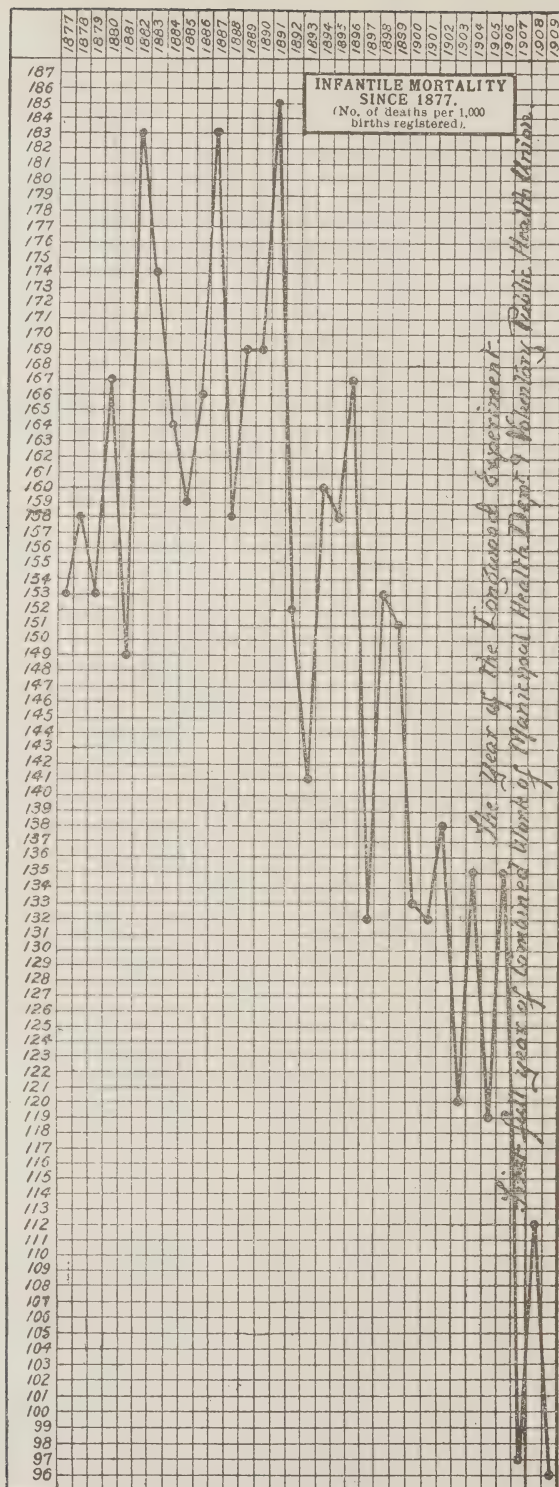 1877 1878 1879 1880 1881 1882 1883 1884 1885 1886 1887 1888 1889 1890 1891 1892 1893 1894 1895 1896 1897 1898 1899 1900 1901 1902 1903 1904 1905 1906 1907 1908 1909
INFANTILE MORTALITY
SINCE 1877.
(No. of deaths per 1,000
births registered).
187
186
185
184
183
182
181
180
179
178
177
176
175
174
173
172
171
170
169
168
167
166
165
164
163
162
161
160
159
158
157
156
155
154
153
152
151
150
149
148
147
146
145
144
143
142
141
140
139
138
137
136
135
134
133
132
131
130
129
128
127
126
125
124
123
122
121
120
119
118
117
116
115
114
113
112
111
110
109
108
107
106
105
104
103
102
101
100
99
98
97
96
The Year of the Longwood Experiment.
First full year of Combined Work of Municipal Health Dept & Voluntary Public Health Union.